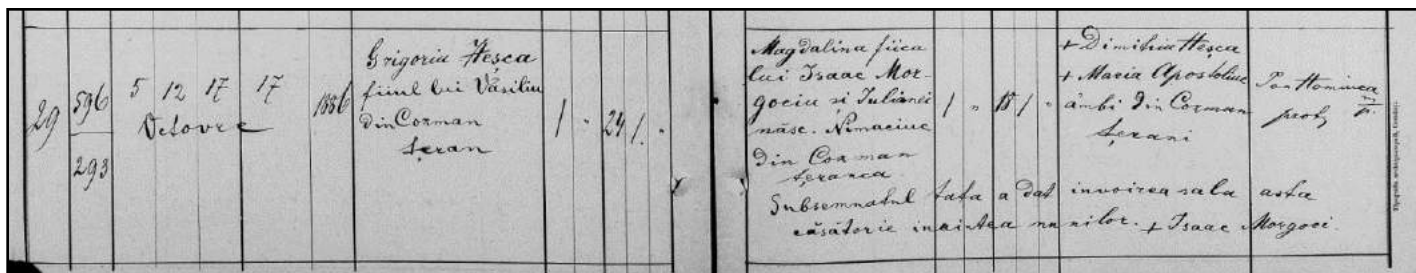 29
596
293
5 12 17 17
Octovre
1886
Grigoriu Heșca
fiiul lui Văsiliu
din Cozman
țeran
1 " 24 1 "
Magdalina fiica
lui Isaac Mor-
gociu si Iulianei
născ. Nimaciuc
din Cozman
țeranca
1 " 18 1 "
+ Dimitriu Heșca
+ Maria Apostoliuc
âmbi din Cozman
țerani
Hominca
prot
Subsemnatul tata a dat invoirea sala asta
căsătorie inaintea nunilor. + Isaac Morgoci.